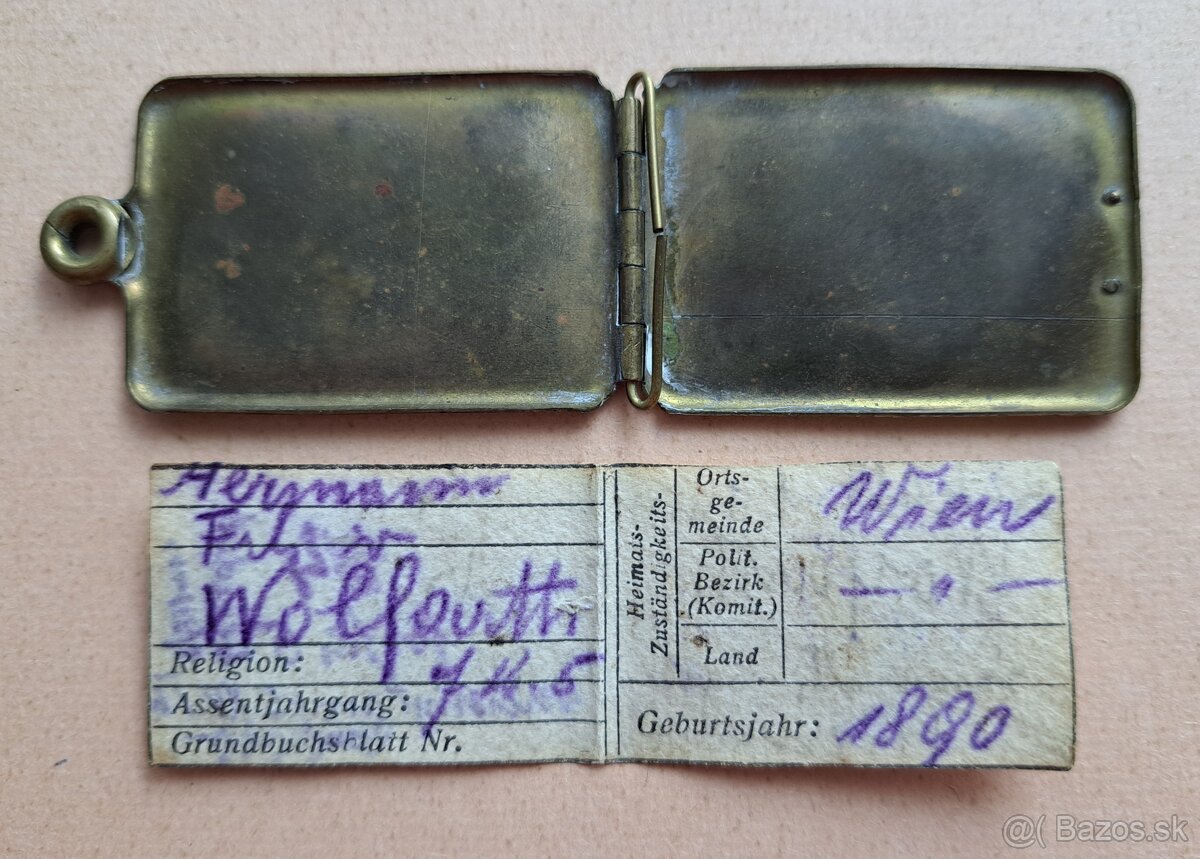 Hermann
Wolfgarth
Religion:
Assentjahrgang:
Grundbuchsblatt Nr.
Heimats-
Zuständigkeits-
Orts-
ge-
meinde
Wien
Polit.
Bezirk
(Komit.)
— " —
Land
Geburtsjahr: 1890
@( Bazos.sk